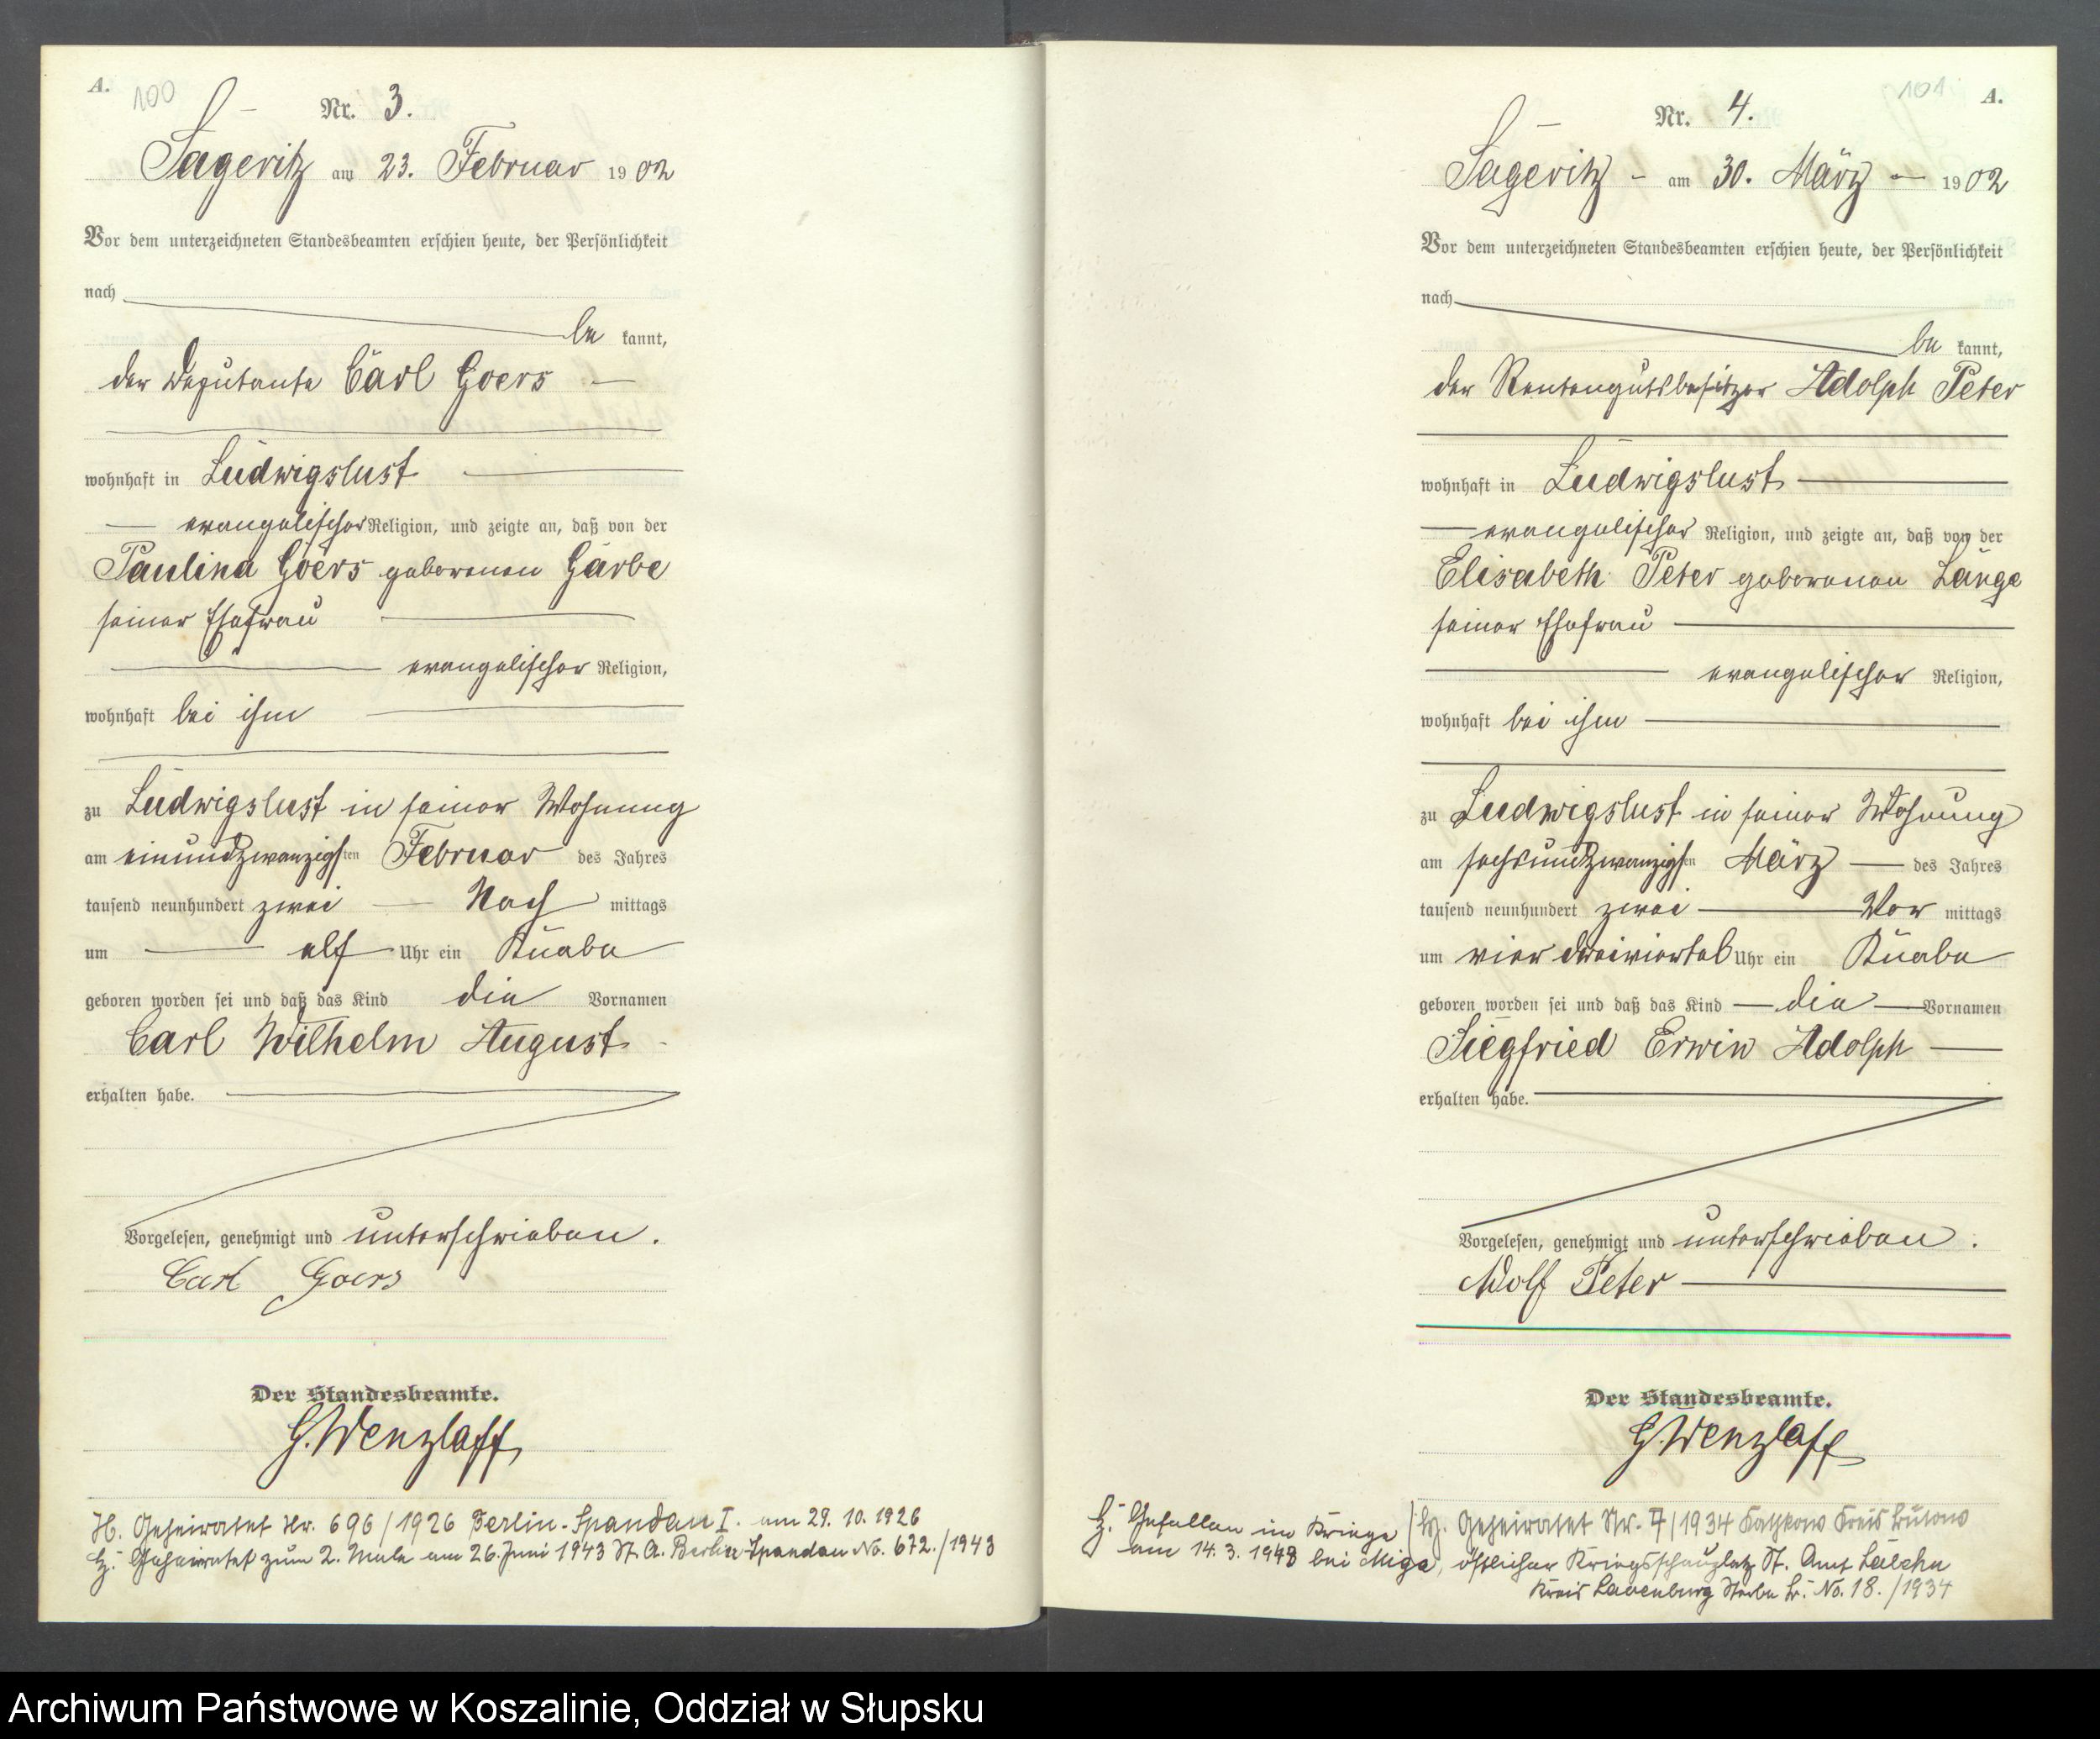 A.
100
Nr. 3.
Sageritz am 23. Februar 1902
Vor dem unterzeichneten Standesbeamten erschien heute, der Persönlichkeit
nach
be kannt,
der Deputante Carl Goers
wohnhaft in Ludwigslust
evangelischer Religion, und zeigte an, daß von der
Paulina Goers geborenen Garbe
seiner Ehefrau
evangelischer Religion,
wohnhaft bei ihm
zu Ludwigslust in seiner Wohnung
am einundzwanzigsten Februar des Jahres
tausend neunhundert zwei Nach mittags
um elf Uhr ein Knabe
geboren worden sei und daß das Kind die Vornamen
Carl Wilhelm August
erhalten habe.
Vorgelesen, genehmigt und unterschrieben.
Carl Goers
Der Standesbeamte.
G. Wenzlaff
H. Geheiratet Nr. 696/1926 Berlin-Spandau I. am 29. 10. 1926
Geheiratet zum 2. Male am 26. Juni 1943 St. A. Berlin-Spandau No. 672./1943
101
A.
Nr. 4.
Sageritz - am 30. März 1902
Vor dem unterzeichneten Standesbeamten erschien heute, der Persönlichkeit
nach
be kannt,
der Rentengutsbesitzer Adolph Peter
wohnhaft in Ludwigslust
evangelischer Religion, und zeigte an, daß von der
Elisabeth Peter geborenen Lange
seiner Ehefrau
evangelischer Religion,
wohnhaft bei ihm
zu Ludwigslust in seiner Wohnung
am sechsundzwanzigsten März des Jahres
tausend neunhundert zwei Vor mittags
um vier dreiviertel Uhr ein Knabe
geboren worden sei und daß das Kind die Vornamen
Siegfried Erwin Adolph
erhalten habe.
Vorgelesen, genehmigt und unterschrieben.
Adolf Peter
Der Standesbeamte.
G. Wenzlaff
Geheiratet Nr. 7/1934 Katzkow Kreis Bütow
Gefallen im Kriege
am 14. 3. 1943 bei Miga, östlicher Kriegsschauplatz St. Amt
Kreis Lauenburg Sterbe No. 18./1934
Archiwum Państwowe w Koszalinie, Oddział w Słupsku